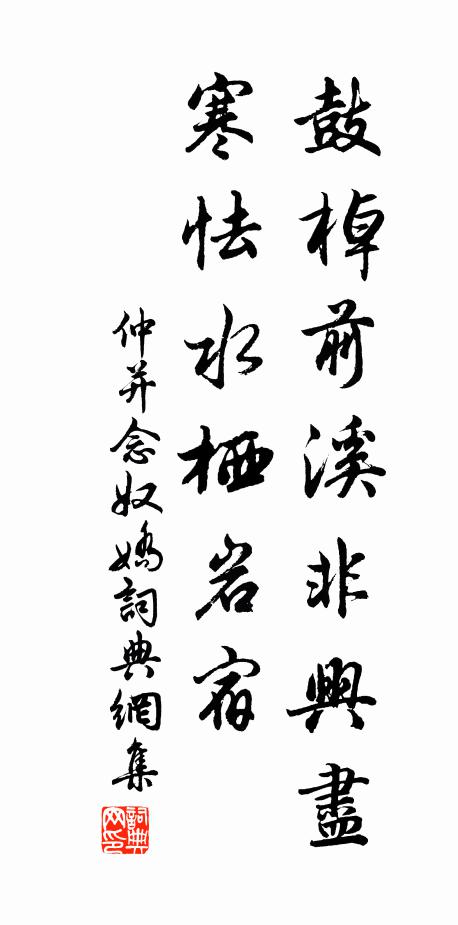 鼓棹前溪非興盡
寒怯水栖岩宿
仲并念奴嬌詞典網集
詞典网印